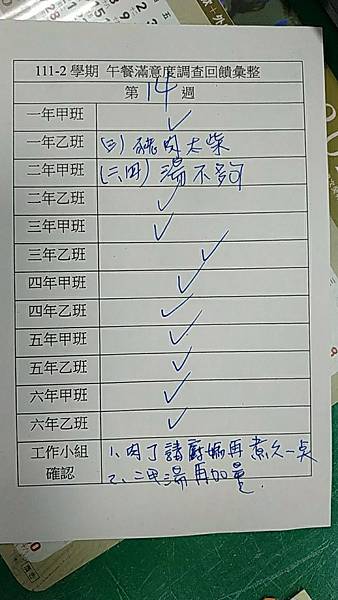 111-2 學期 午餐滿意度調查回饋彙整
第 14 週
一年甲班 ✓
一年乙班 (三) 豬肉太柴
二年甲班 (二、四) 湯不夠
二年乙班 ✓
三年甲班 ✓
三年乙班 ✓
四年甲班 ✓
四年乙班 ✓
五年甲班 ✓
五年乙班 ✓
六年甲班 ✓
六年乙班 ✓
工作小組 1、肉丁請廚媽再煮久一点
確認 2、二甲湯再加量